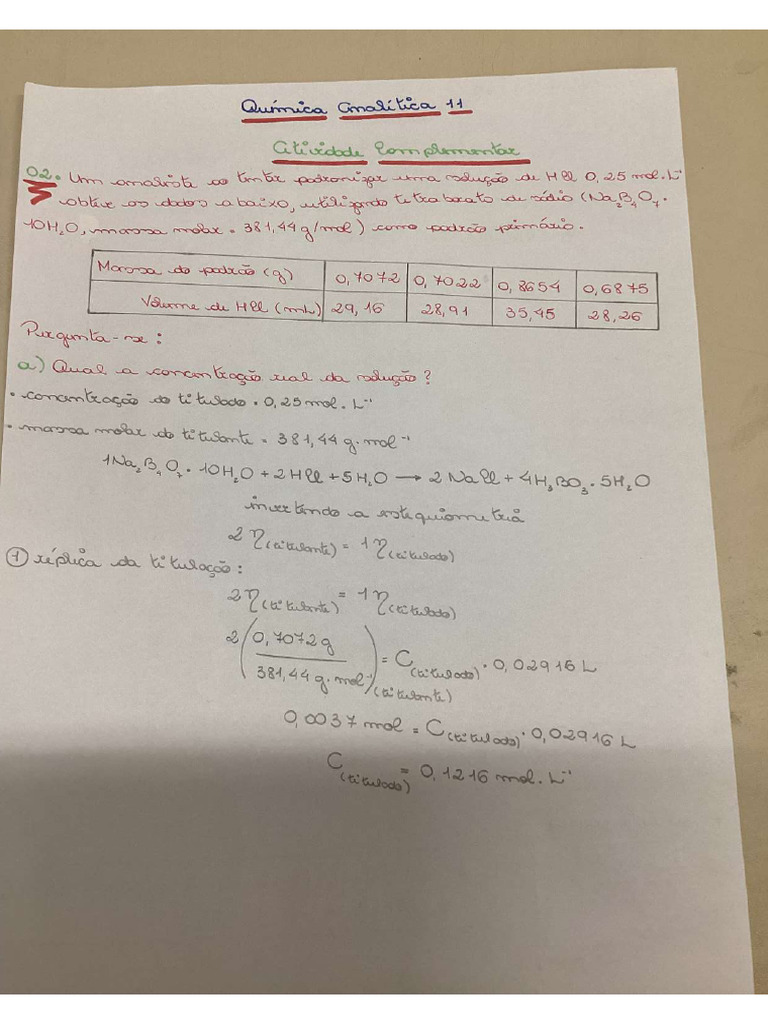 Química Analítica 11
Atividade Complementar
02. Um analista ao tentar padronizar uma solução de HCl 0,25 mol.L⁻¹
obteve os dados abaixo, utilizando tetraborato de sódio (Na₂B₄O₇.
10H₂O, massa molar = 381,44g/mol) como padrão primário.
Massa do padrão (g) 0,7072 0,7022 0,8654 0,6875
Volume de HCl (mL) 29,16 28,91 35,45 28,26
Pergunta-se:
a) Qual a concentração real da solução?
• concentração do titulado = 0,25 mol.L⁻¹
• massa molar do titulante = 381,44 g.mol⁻¹
1Na₂B₄O₇.10H₂O + 2HCl + 5H₂O → 2NaCl + 4H₃BO₃.5H₂O
invertendo a estequiometria
2η(titulante) = 1η(titulado)
① réplica da titulação:
2η(titulante) = 1η(titulado)
2(0,7072g / 381,44 g.mol⁻¹)(titulante) = C(titulado) . 0,02916 L
0,0037 mol = C(titulado) . 0,02916 L
C(titulado) = 0,1216 mol.L⁻¹